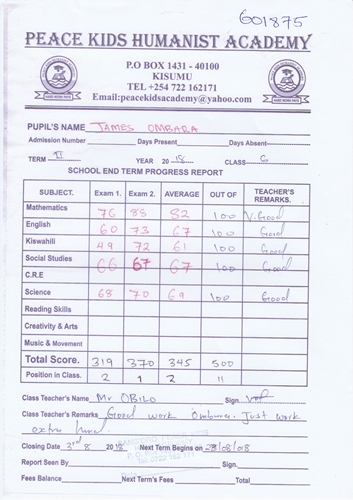 601875
PEACE KIDS HUMANIST ACADEMY
P.O BOX 1431 - 40100
KISUMU
TEL +254 722 162171
Email:peacekidsacademy@yahoo.com
PUPIL'S NAME JAMES OMBARA
Admission Number Days Present Days Absent
TERM II YEAR 2018 CLASS 6
SCHOOL END TERM PROGRESS REPORT
SUBJECT. Exam 1. Exam 2. AVERAGE OUT OF TEACHER'S REMARKS.
Mathematics 76 88 82 100 V.Good
English 60 73 67 100 Good
Kiswahili 49 72 61 100 Good
Social Studies 66 67 67 100 Good
C.R.E
Science 68 70 69 100 Good
Reading Skills
Creativity & Arts
Music & Movement
Total Score. 319 370 345 500
Position in Class. 2 1 2 11
Class Teacher's Name Mr OBILO Sign
Class Teacher's Remarks Good work Ombara. Just work
extra hard.
Closing Date 3rd 8 2018 Next Term Begins on /08/08
Report Seen By Sign.
Fees Balance Next Term's Fees Total